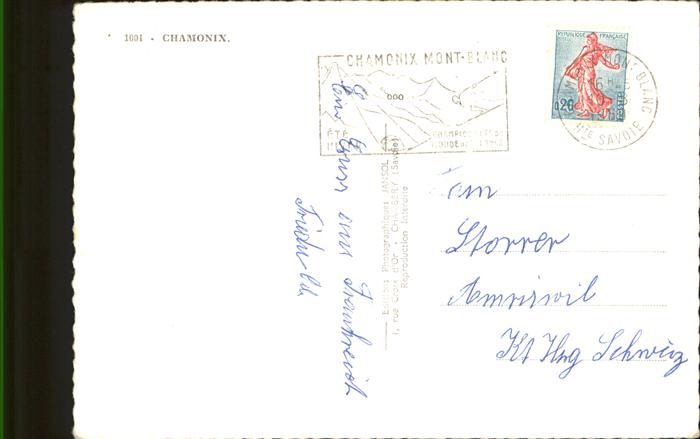 1001 - CHAMONIX.
CHAMONIX MONT-BLANC
ÉTÉ
CHAMPIONNATS DU
MONDE
REPUBLIQUE FRANÇAISE
0,20
MONT BLANC
HTE SAVOIE
Editions Photographiques JANSOL
1, rue Croix d'Or - CHAMBERY (Savoie)
Reproduction Interdite
Gruss aus Frankreich
Fam
Storrer
Amriswil
Kt Thg Schweiz